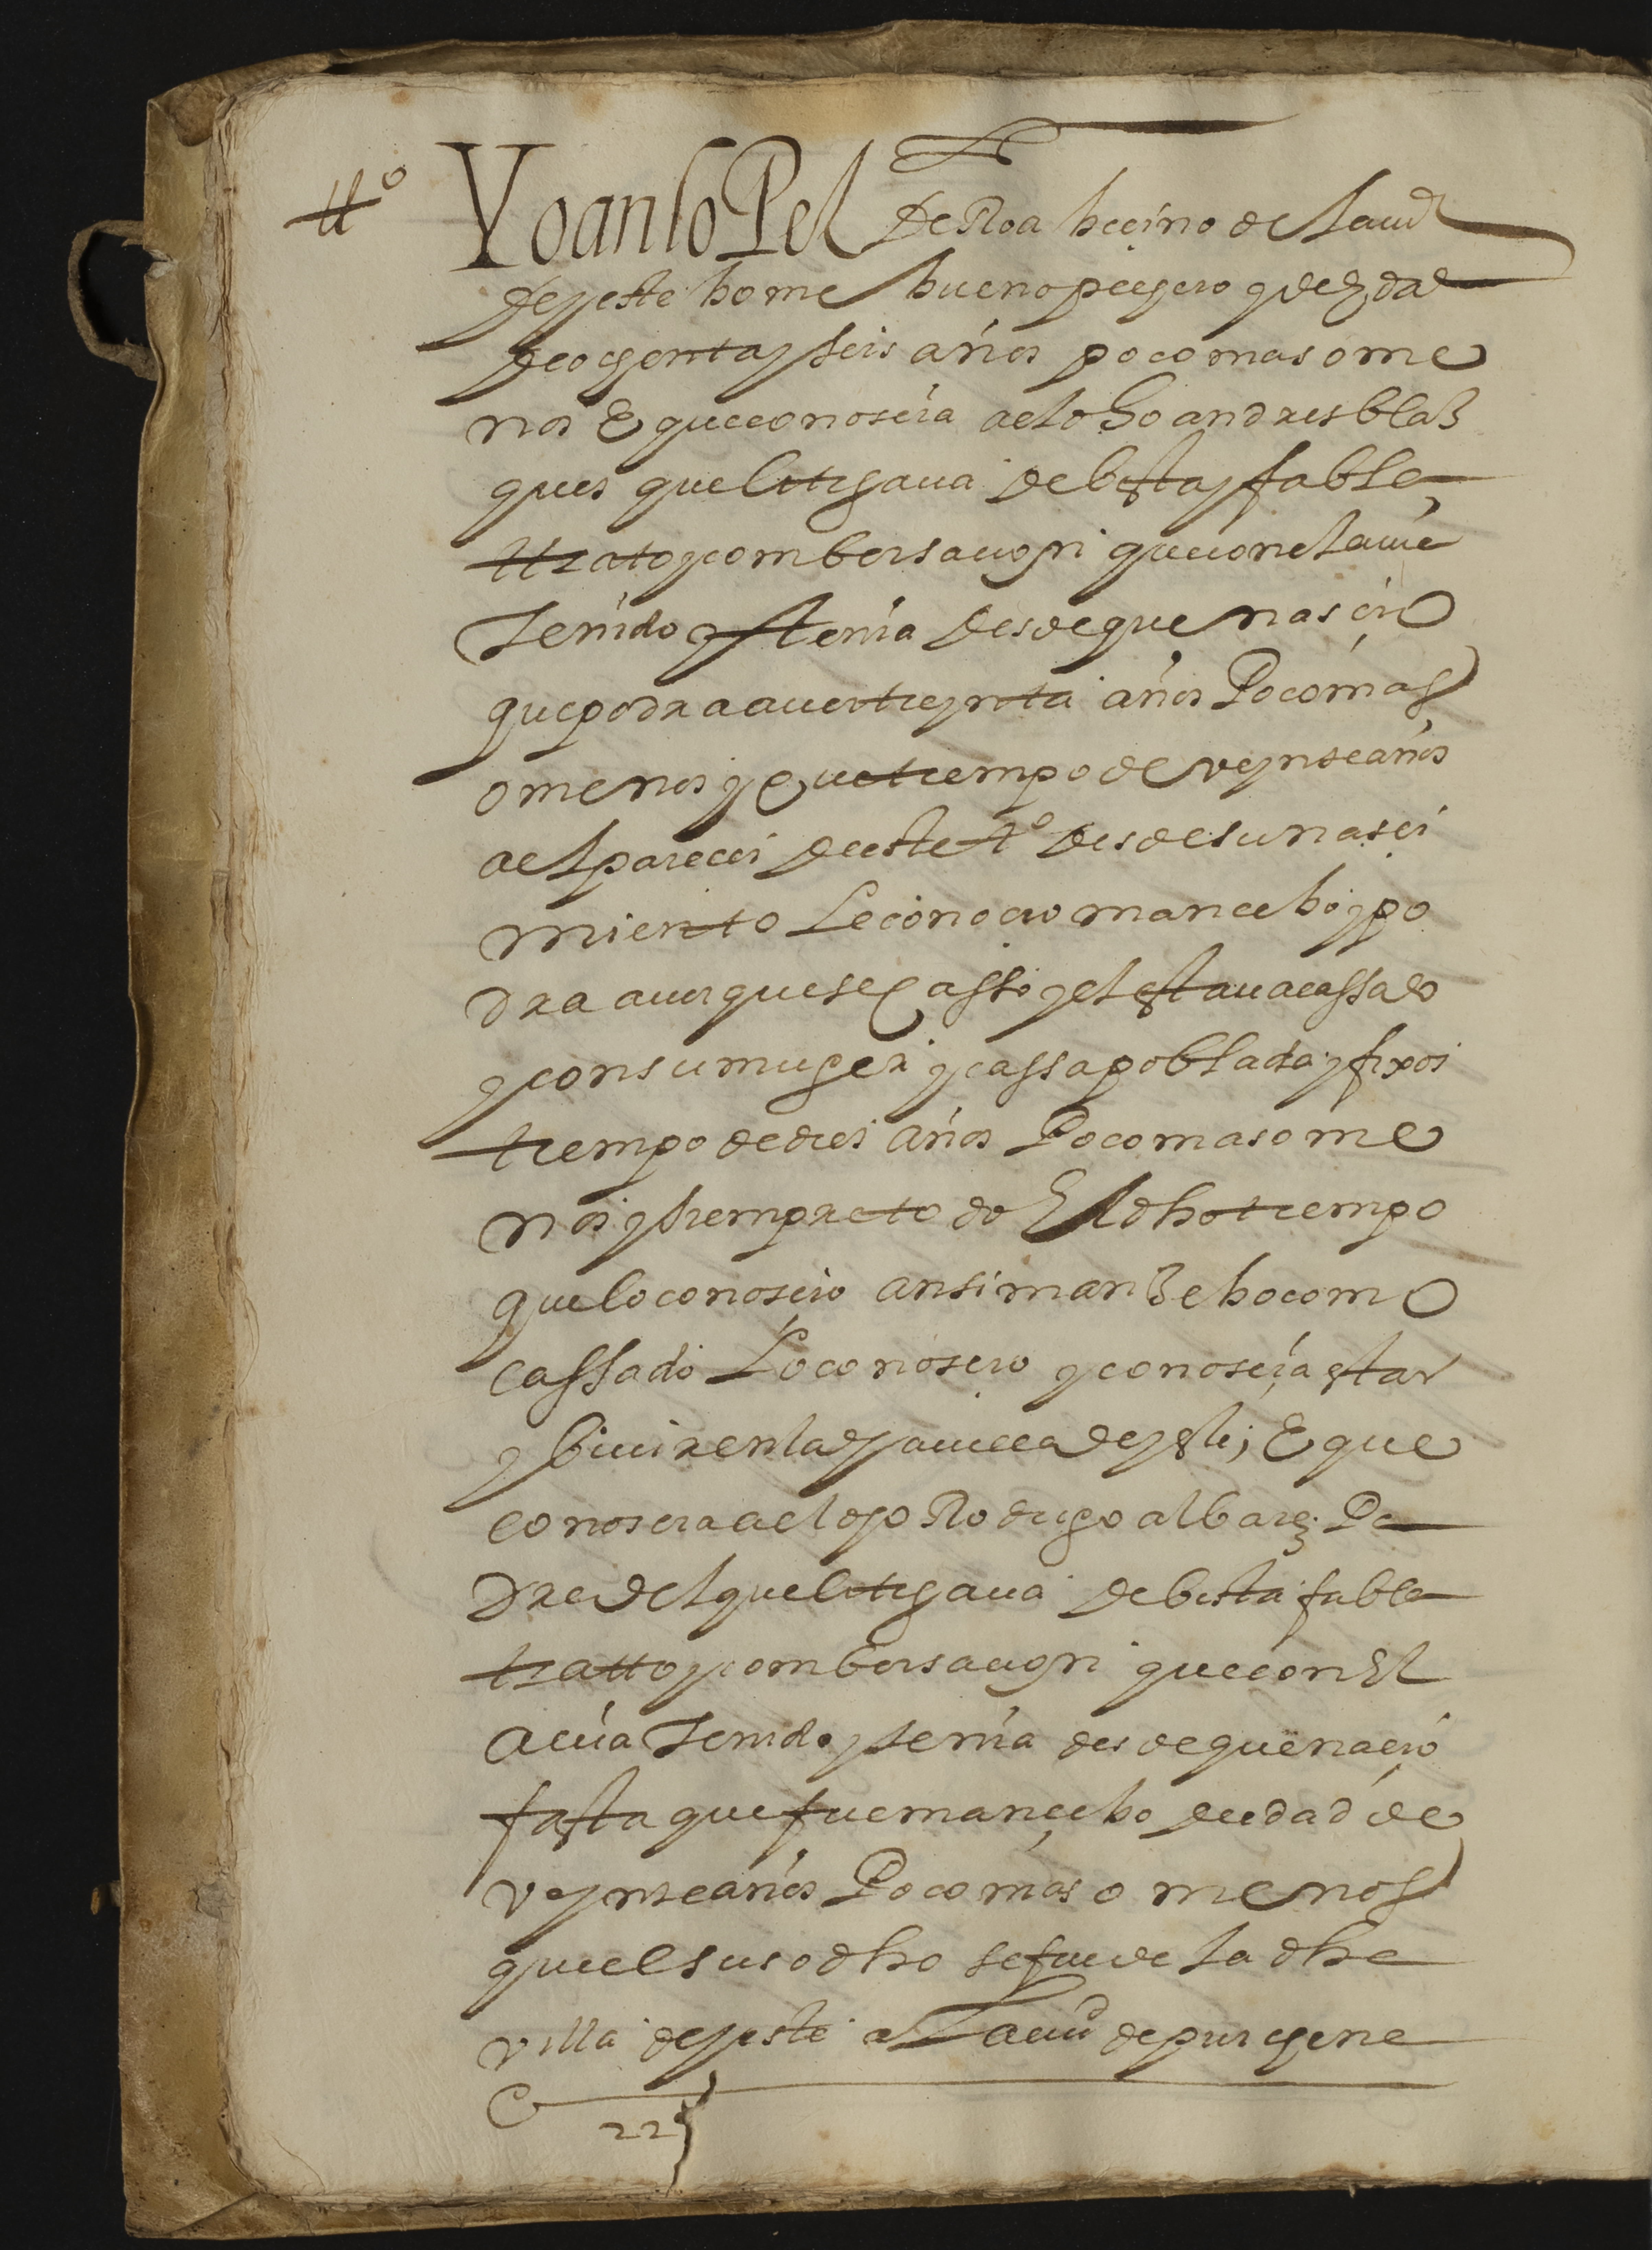 tt°
Yoan lopez de Roa becino de la ciud
de yeste home bueno pechero q de hedad
de ochenta y seis años poco mas o me
nos E que conoscia a el dho andres blas
ques que litigaua de bista y fabla
ttrato y combersacion que con el auie
tenido y tenia desde que nascio
que podra auer treynta años Poco mas
o menos y que tiempo de veynte años
a el parecer de este tº desde su nasci
miento le conocio mancebo y po
dra auer que se casso y el estaua cassado
y con su muger y cassa poblada y fixos
tiempo de dies años Poco mas o me
nos y siempre todo El dho tiempo
que lo conoscio ansi manzebo como
cassado Lo conoscio y conoscia estar
y biuir en la dha uilla de yeste; E que
conoscia a el dho Rodrigo albarez Pa
dre de el que litigaua de bista fabla
tratto y combersacion que con El
auia tenido y tenia desde que nacio
fasta que fue mancebo de edad de
veynte años Poco mas o menos
que el susodho se fue de la dha
villa de yeste a La ciud de purchena
22